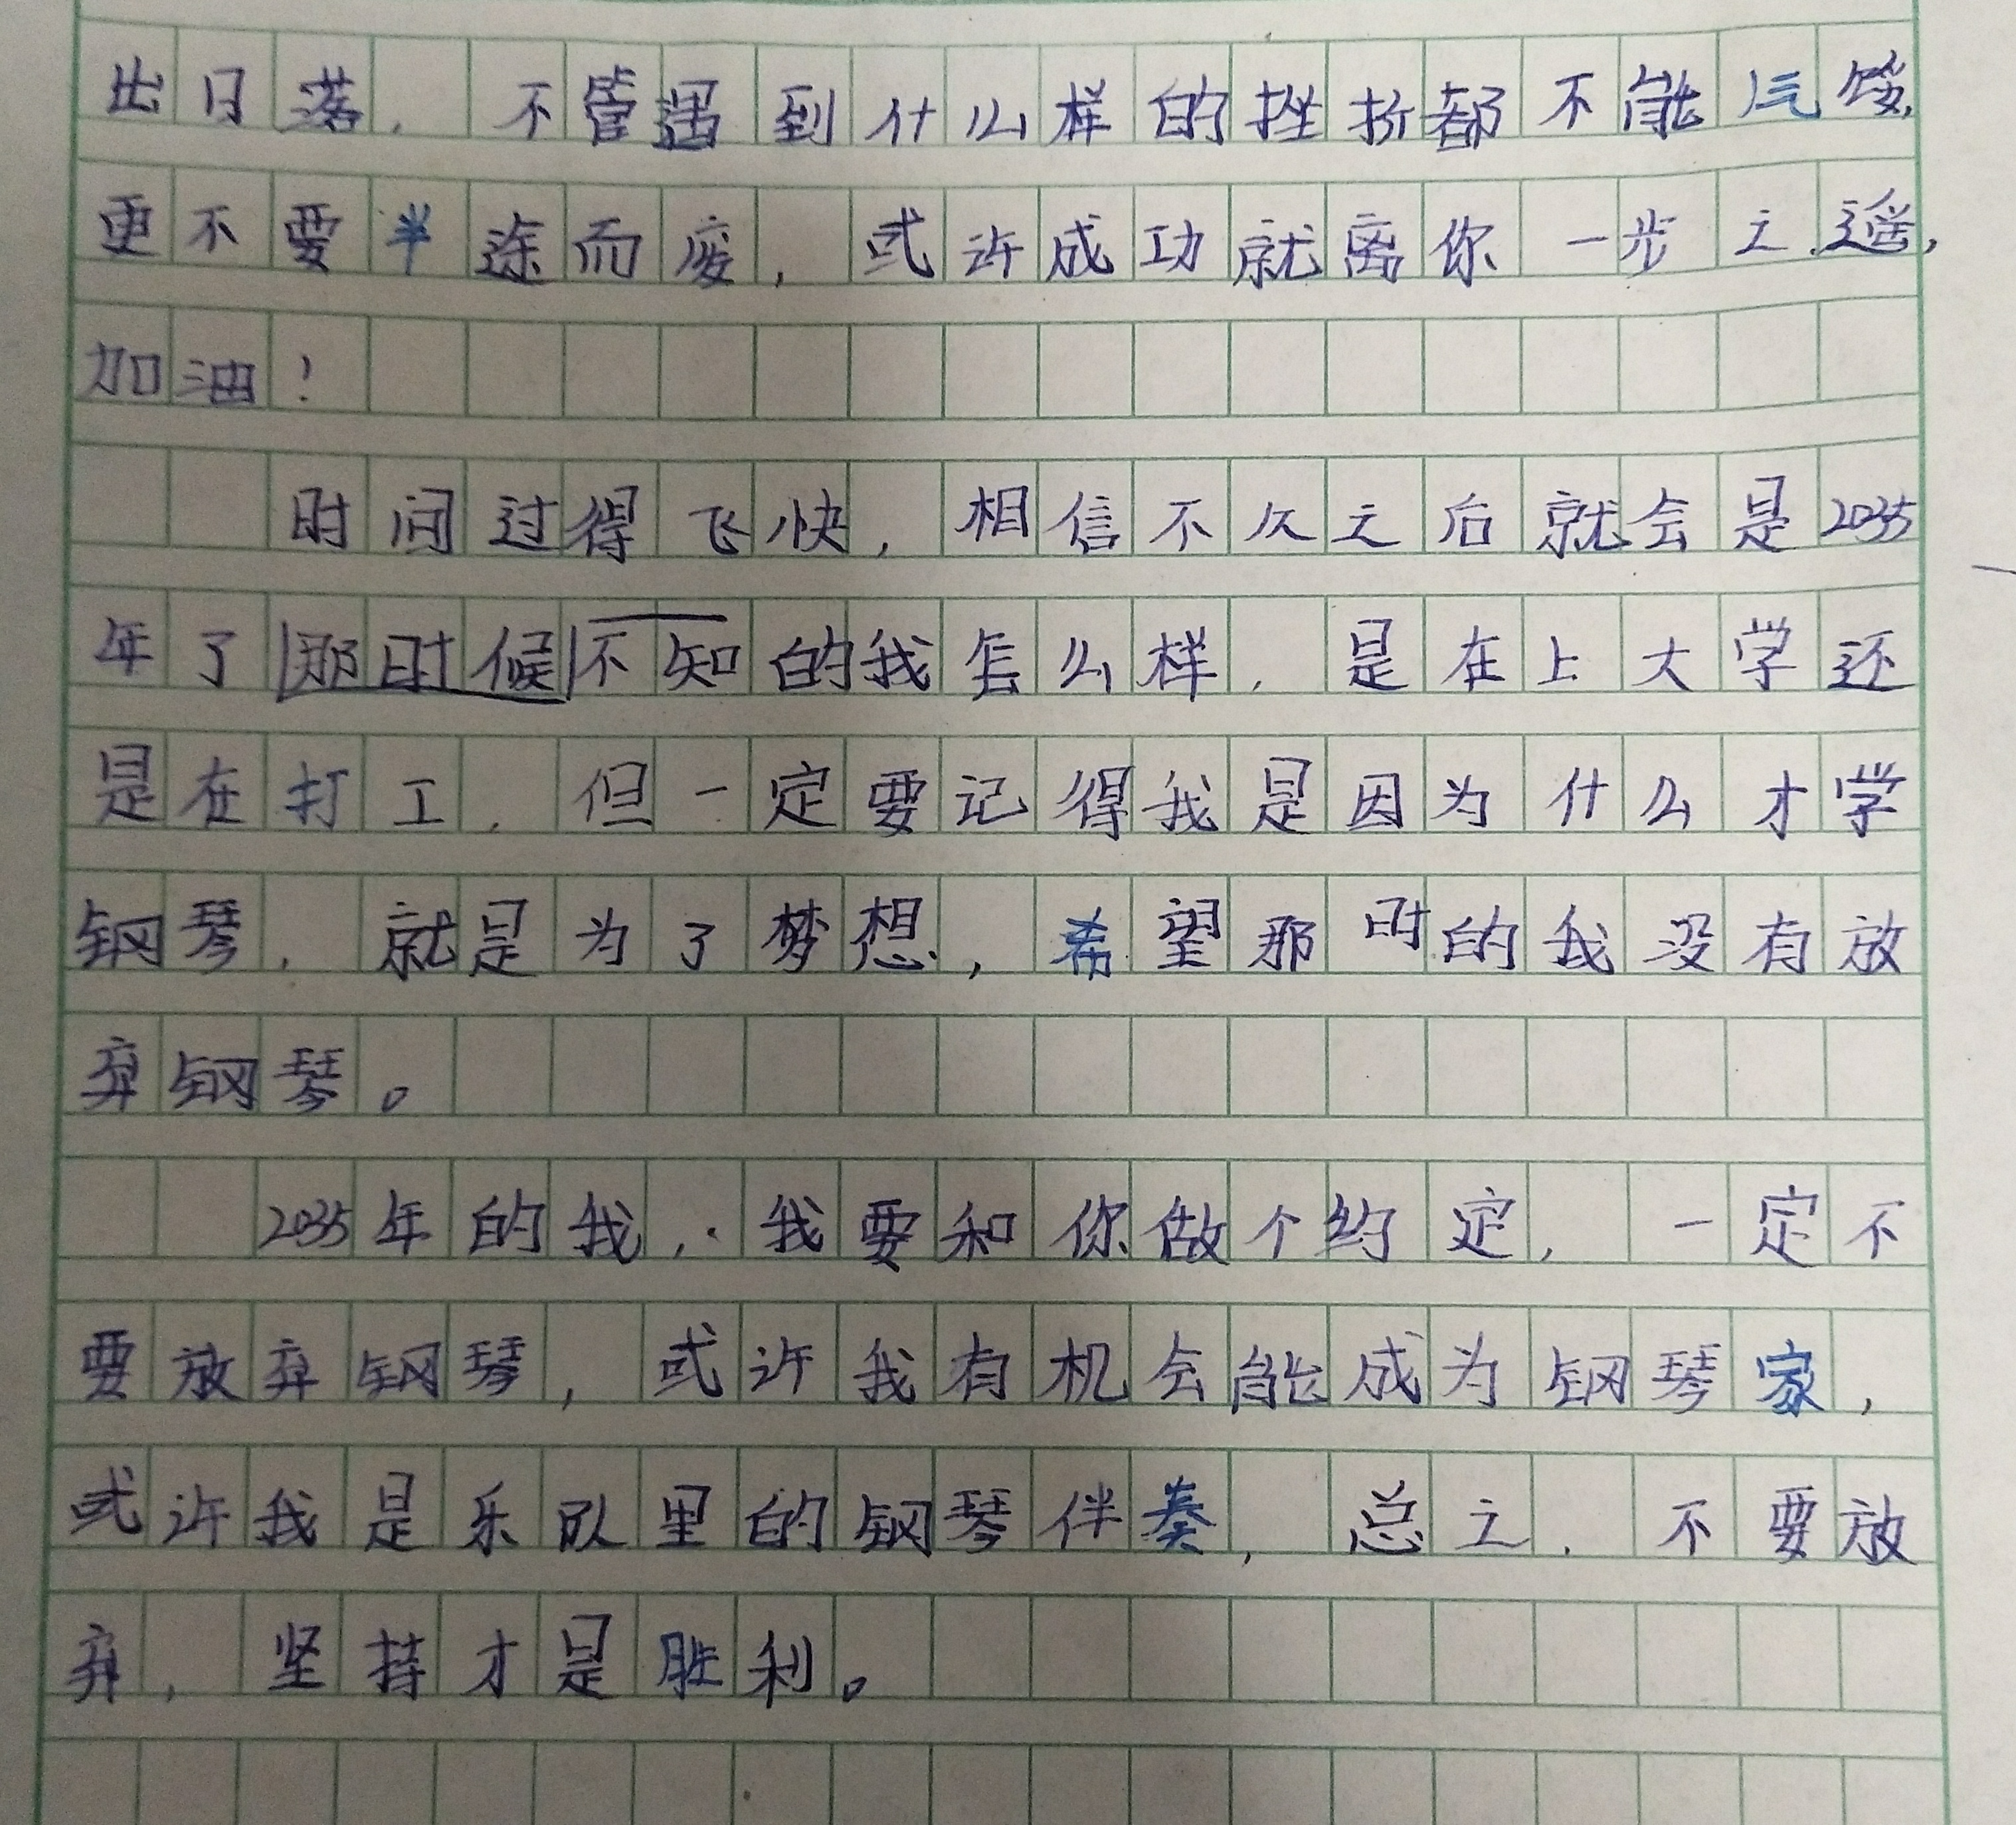 出日落，不管遇到什么样的挫折都不能气馁，
更不要半途而废，或许成功就离你一步之遥，
加油！
时间过得飞快，相信不久之后就会是2035
年了那时候不知的我怎么样，是在上大学还
是在打工，但一定要记得我是因为什么才学
钢琴，就是为了梦想，希望那时的我没有放
弃钢琴。
2035年的我，我要和你做个约定，一定不
要放弃钢琴，或许我有机会能成为钢琴家，
或许我是乐队里的钢琴伴奏，总之，不要放
弃，坚持才是胜利。